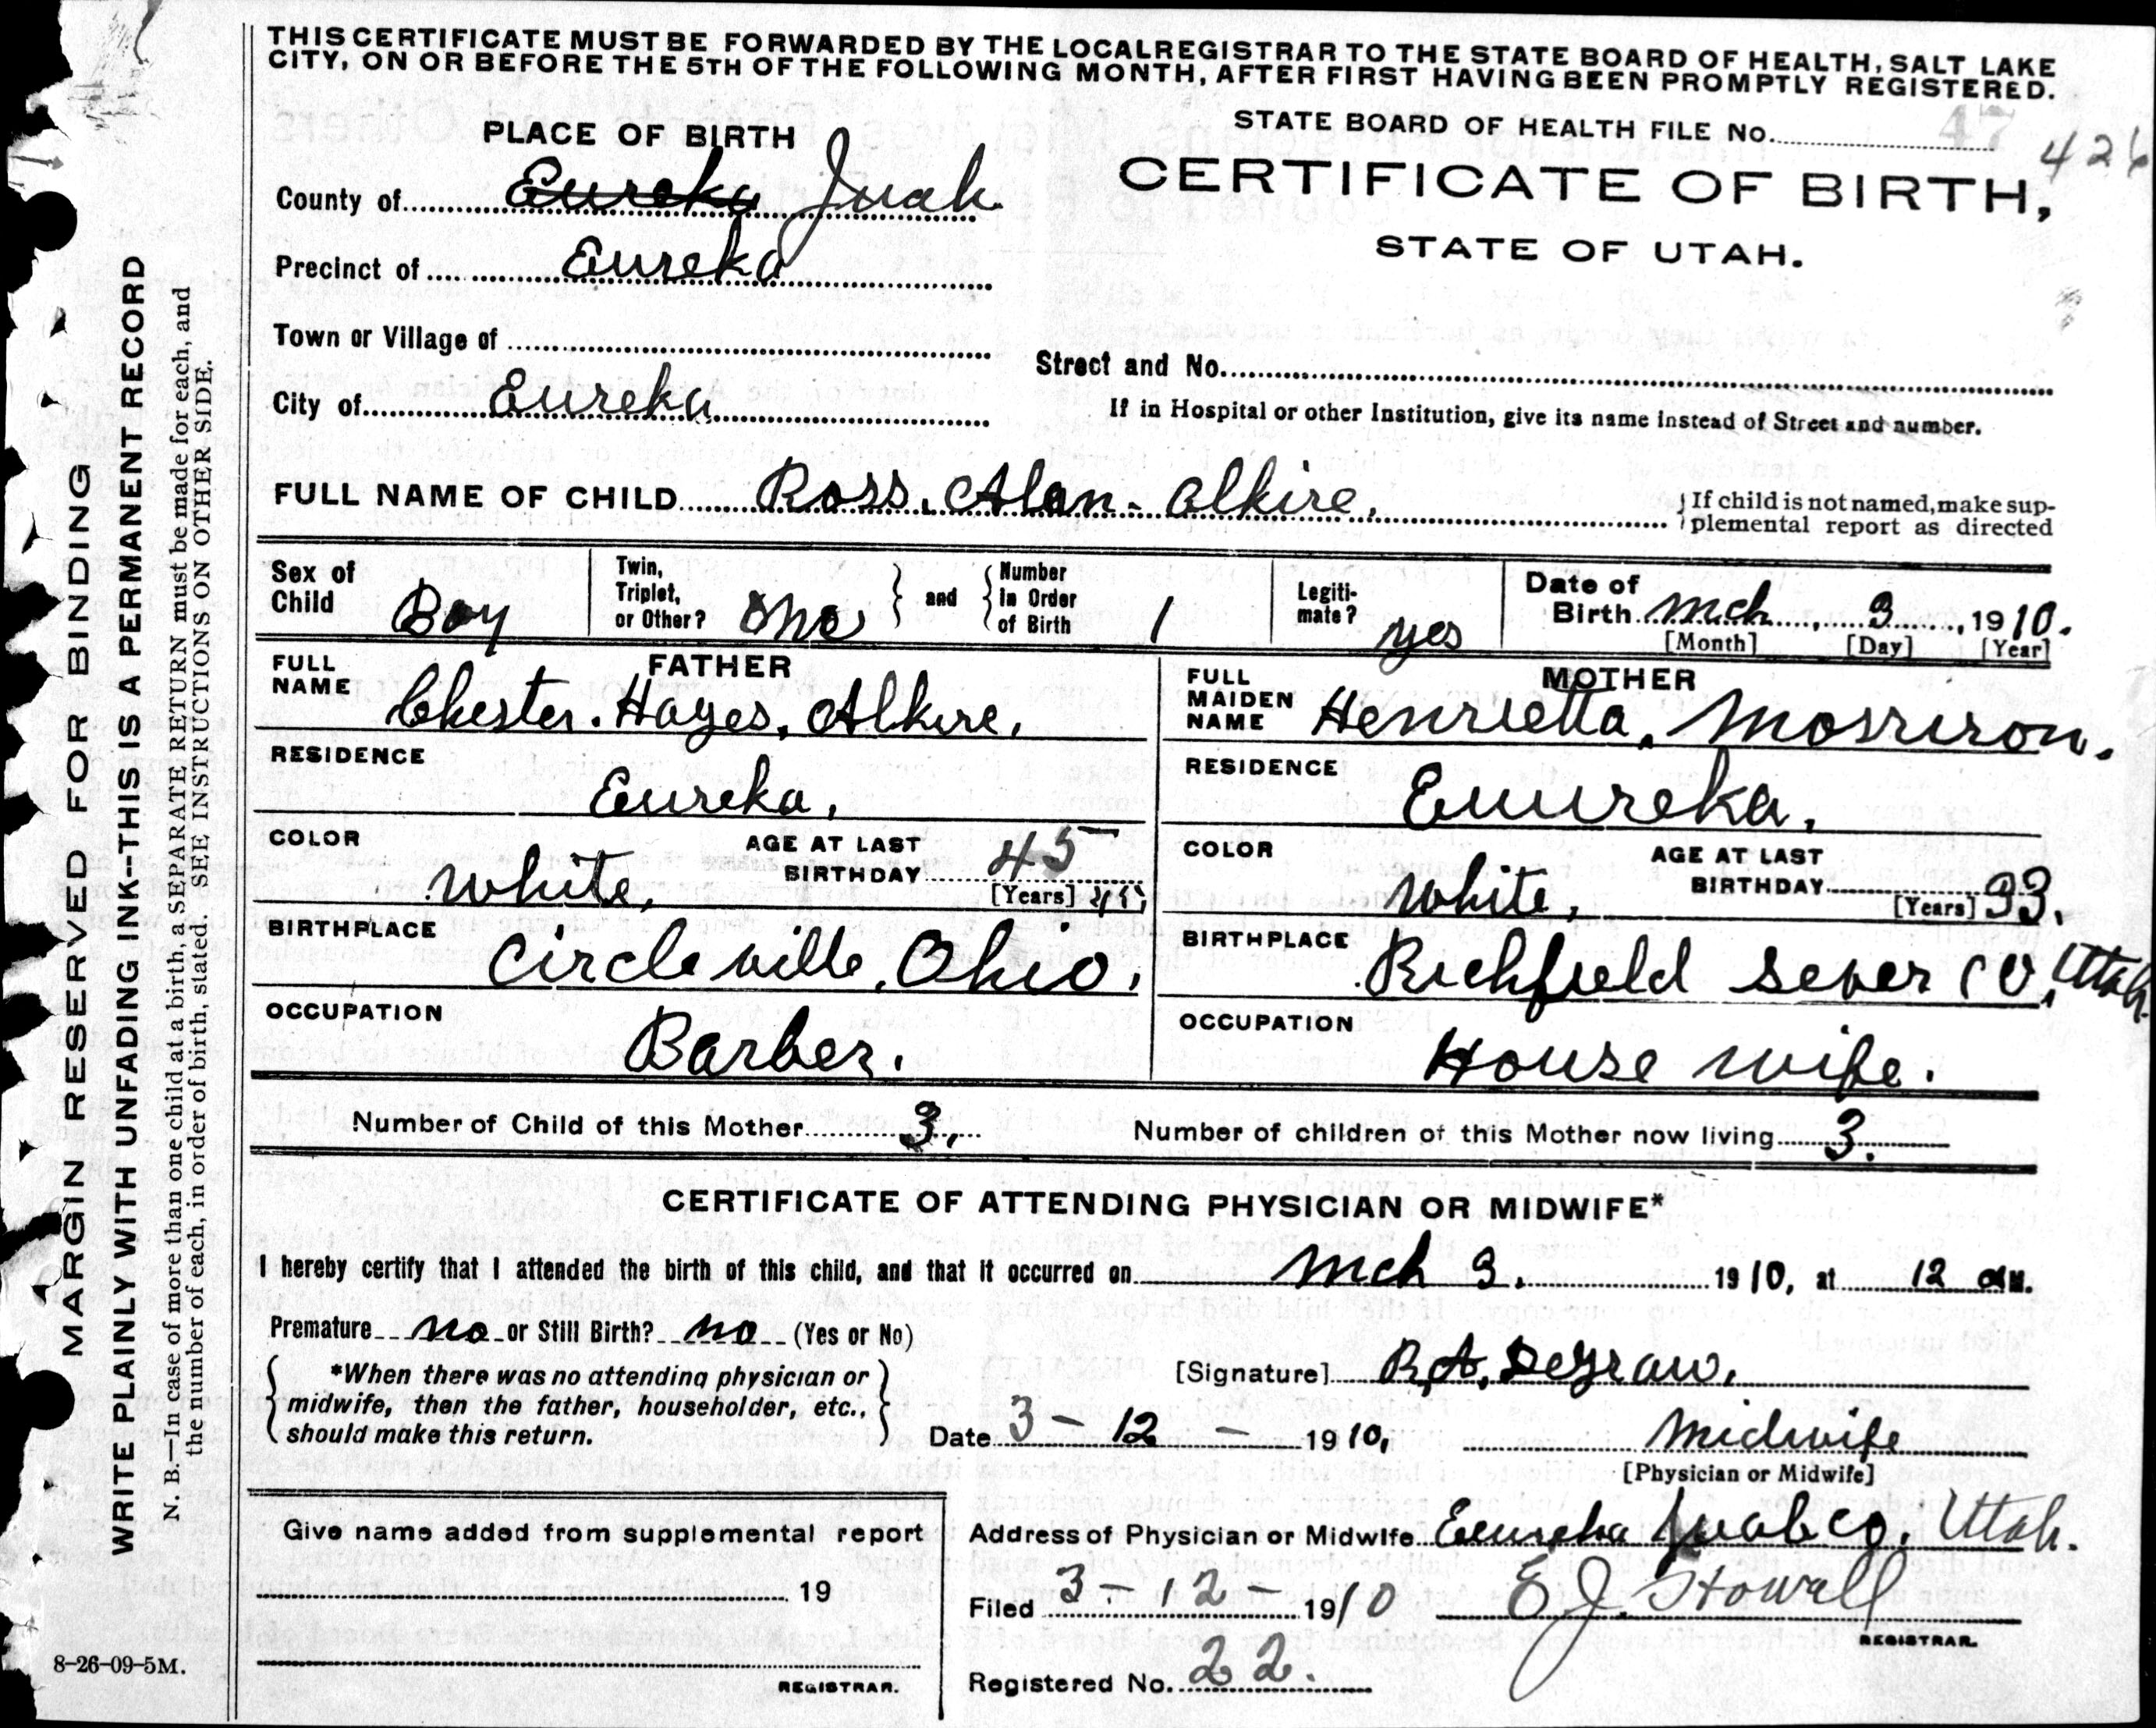 THIS CERTIFICATE MUST BE FORWARDED BY THE LOCAL REGISTRAR TO THE STATE BOARD OF HEALTH, SALT LAKE
CITY, ON OR BEFORE THE 5TH OF THE FOLLOWING MONTH, AFTER FIRST HAVING BEEN PROMPTLY REGISTERED.
STATE BOARD OF HEALTH FILE No. 47
426
PLACE OF BIRTH
CERTIFICATE OF BIRTH,
STATE OF UTAH.
County of Eureka Juab
Precinct of Eureka
Town or Village of
Street and No.
City of Eureka
If in Hospital or other Institution, give its name instead of Street and number.
FULL NAME OF CHILD Ross. Alan. Alkire,
If child is not named, make sup-
plemental report as directed
Sex of Child Boy
Twin, Triplet, or Other? One and Number In Order of Birth 1
Legiti-mate? yes
Date of Birth Mch 3, 1910.
[Month] [Day] [Year]
FATHER
FULL NAME Chester. Hayes. Alkire,
RESIDENCE
Eureka,
COLOR white,
AGE AT LAST BIRTHDAY 45
[Years] 45,
BIRTHPLACE Circleville, Ohio,
OCCUPATION
Barber.
MOTHER
FULL MAIDEN NAME Henrietta, Morrison.
RESIDENCE
Euureka,
COLOR white,
AGE AT LAST BIRTHDAY 33.
[Years]
BIRTHPLACE Richfield Sever Co, Utah.
OCCUPATION
House wife.
Number of Child of this Mother 3.
Number of children of this Mother now living 3.
CERTIFICATE OF ATTENDING PHYSICIAN OR MIDWIFE*
I hereby certify that I attended the birth of this child, and that it occurred on Mch 3. 1910, at 12 aM.
Premature no or Still Birth? no (Yes or No)
*When there was no attending physician or
midwife, then the father, householder, etc.,
should make this return.
[Signature] R,A, DeGraw,
Date 3 - 12 - 1910,
Midwife
[Physician or Midwife]
Give name added from supplemental report
19
REGISTRAR.
Address of Physician or Midwife Eeureka Juab co, Utah.
Filed 3 - 12 - 1910 E J. Howell
REGISTRAR.
Registered No. 22.
8-26-09-5M.
MARGIN RESERVED FOR BINDING
WRITE PLAINLY WITH UNFADING INK--THIS IS A PERMANENT RECORD
N. B.—In case of more than one child at a birth, a SEPARATE RETURN must be made for each, and
the number of each, in order of birth, stated. SEE INSTRUCTIONS ON OTHER SIDE.